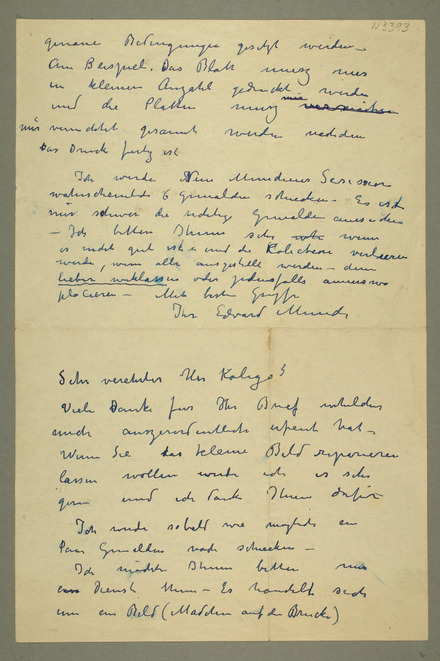 N 2393
genaue Bedingungen gesetzt werden –
Am Beispiel. Das Blatt musz nur
in kleinen Anzahl gedruckt werden
und die Platten musz mir
mir vernichtet gesamt werden nachdem
das Druck fertig ist
Ich werde Neue Mündener Secession
wahrscheinlich 6 Gemälden schicken – Es ist
mir schwer die richtige Gemälden
– Ich bitten Ihnen sehr wenn
es nicht gut ist und die Kolektion verlieren
werde, wenn alle ausgestellt werden – dann
lieber weklassen oder jedenfalls anderswo
placieren – Mit besten Grüsse
Ihr Edvard Munch
Sehr verehrter Herr Kollege!
Viele Danke für Ihr Brief welches
mich auszerordentlich erfreut hat –
Wenn Sie das kleine Bild reponieren
lassen wollen werde ich es sehr
gern und ich danke Ihnen dafür
Ich werde sobald wie möglich ein
Paar Gemälden noch schicken –
Ich möchte Ihnen bitten mir
ein Dienst thun – Es handelt sich
um ein Bild (Mädchen auf der Brücke)